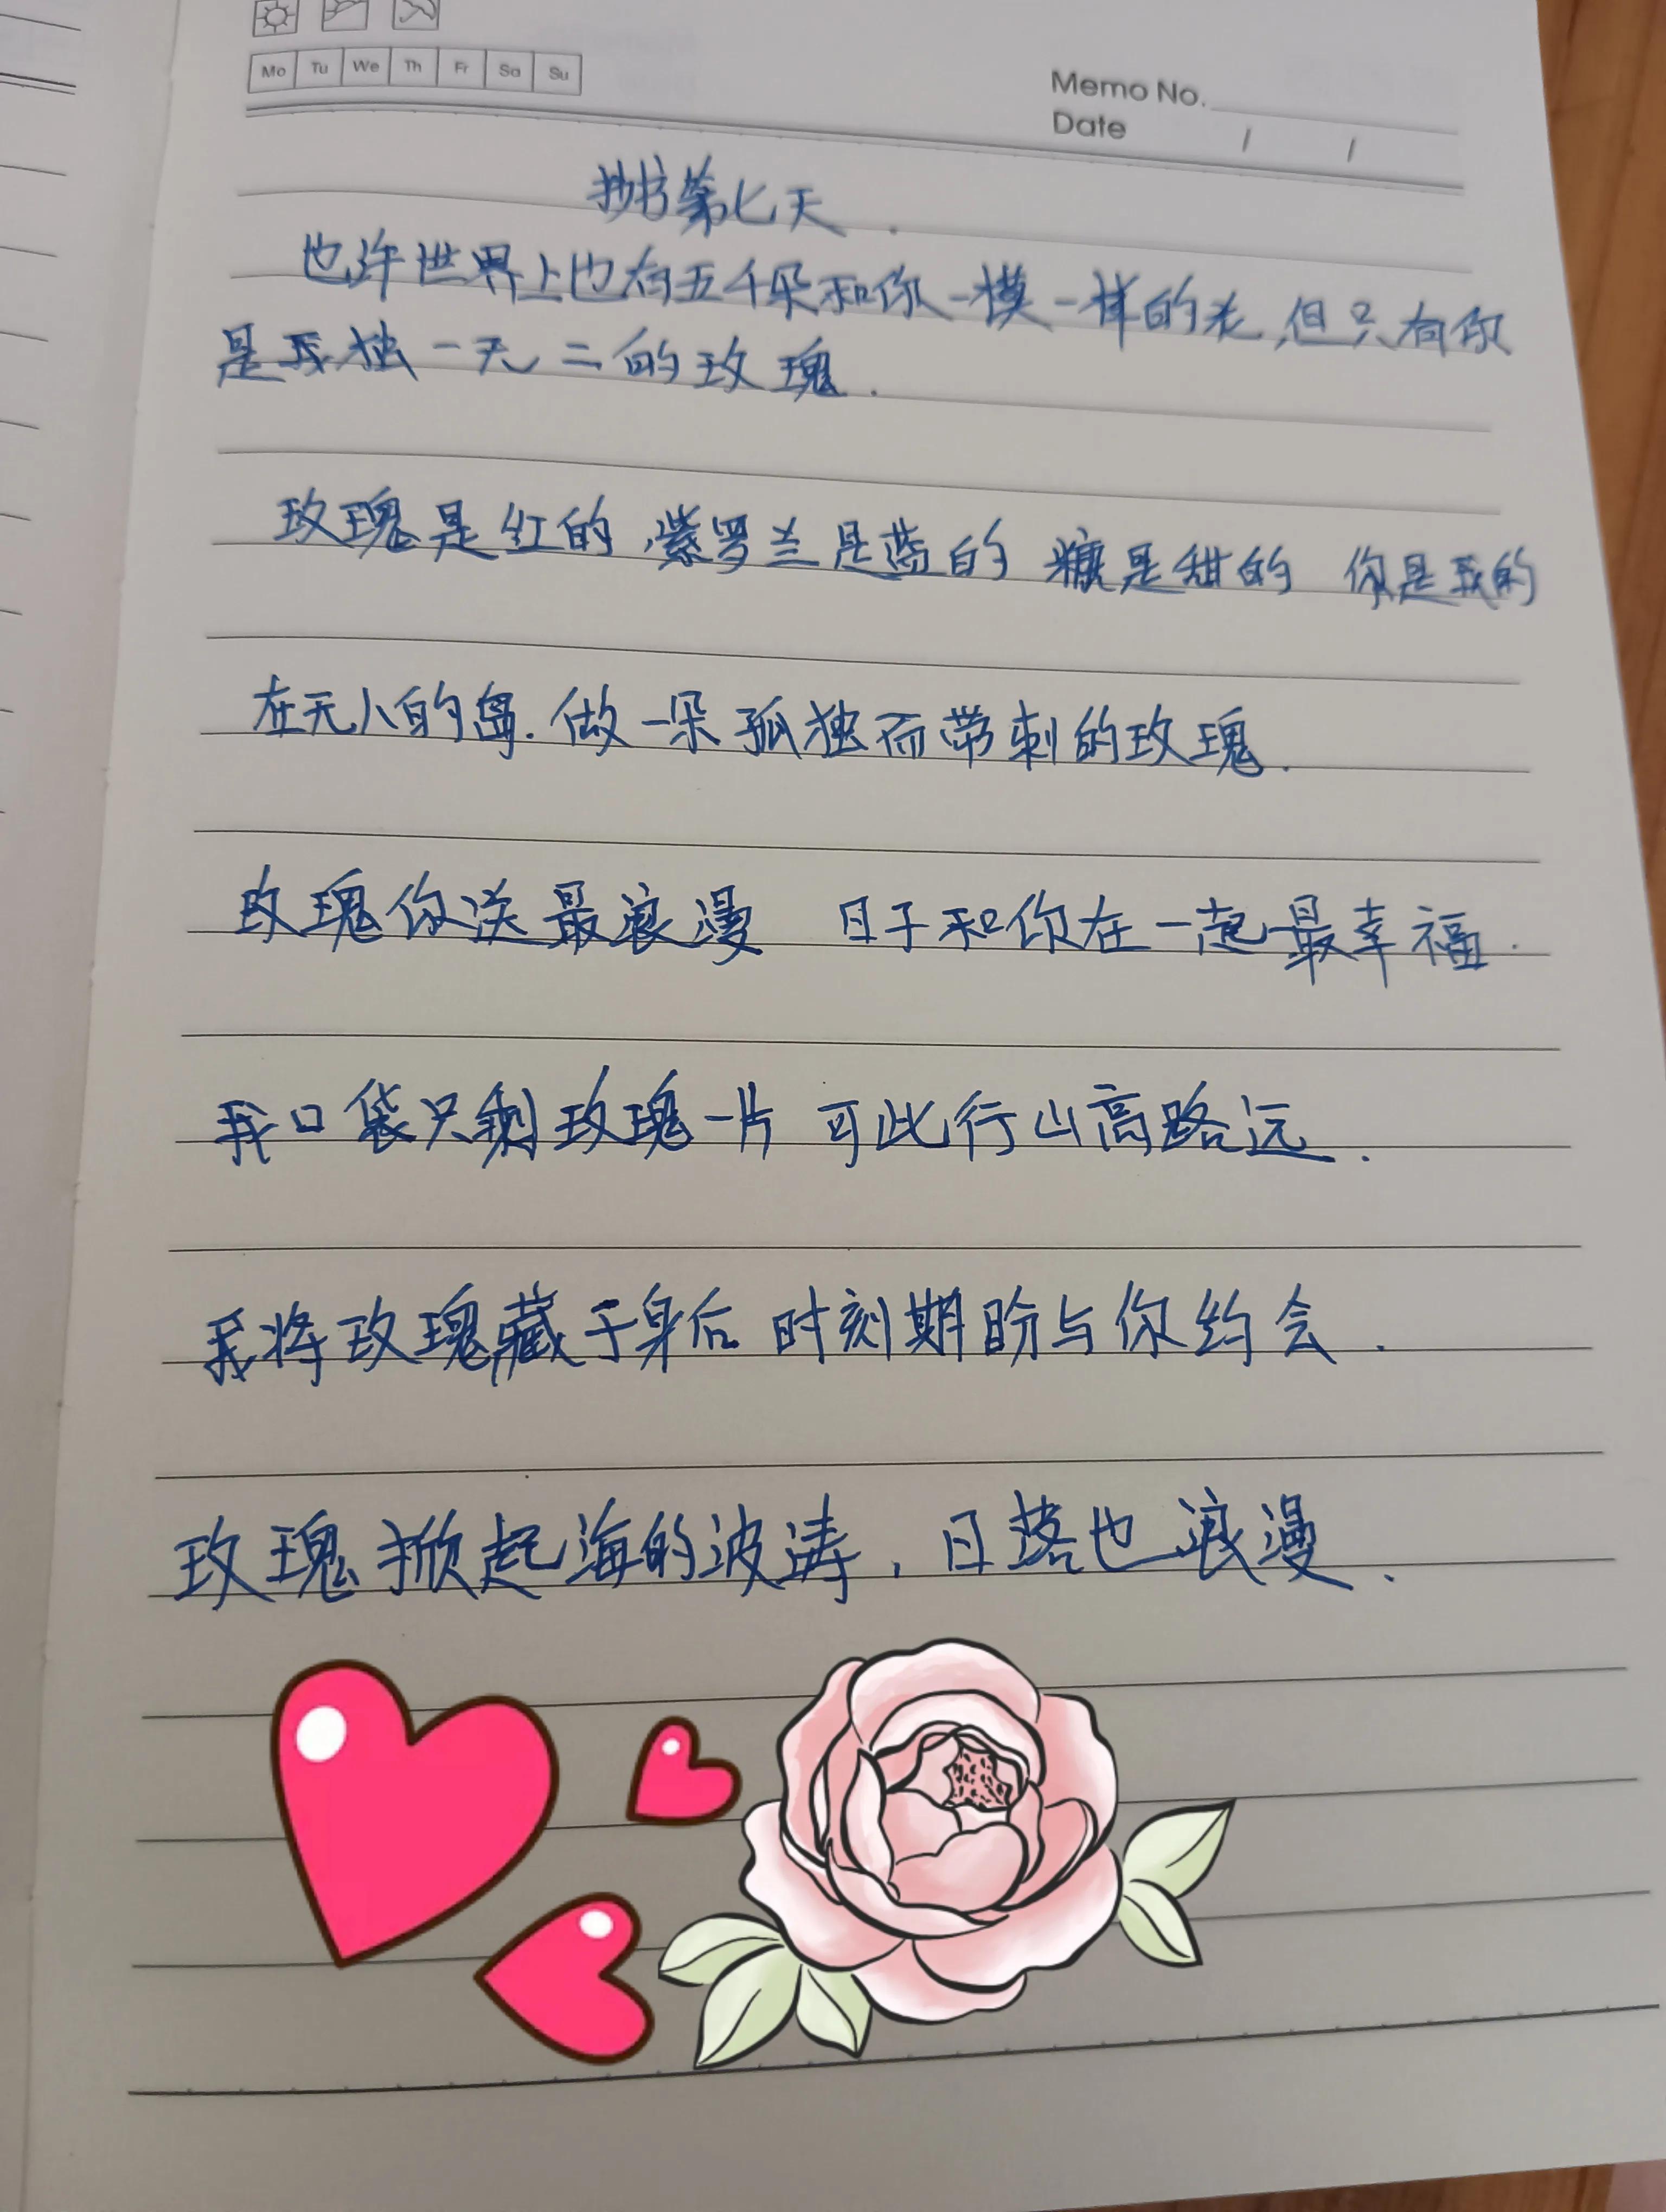 Mo Tu We Th Fr Sa Su
Memo No.
Date / /
抄书第七天.
也许世界上也有五千朵和你一模一样的花,但只有你
是我独一无二的玫瑰.
玫瑰是红的 紫罗兰是蓝的 糖是甜的 你是我的
在无人的岛.做一朵孤独而带刺的玫瑰.
玫瑰你送最浪漫 日子和你在一起最幸福.
我口袋只剩玫瑰一片 可此行山高路远.
我将玫瑰藏于身后 时刻期盼与你约会.
玫瑰掀起海的波涛,日落也浪漫.